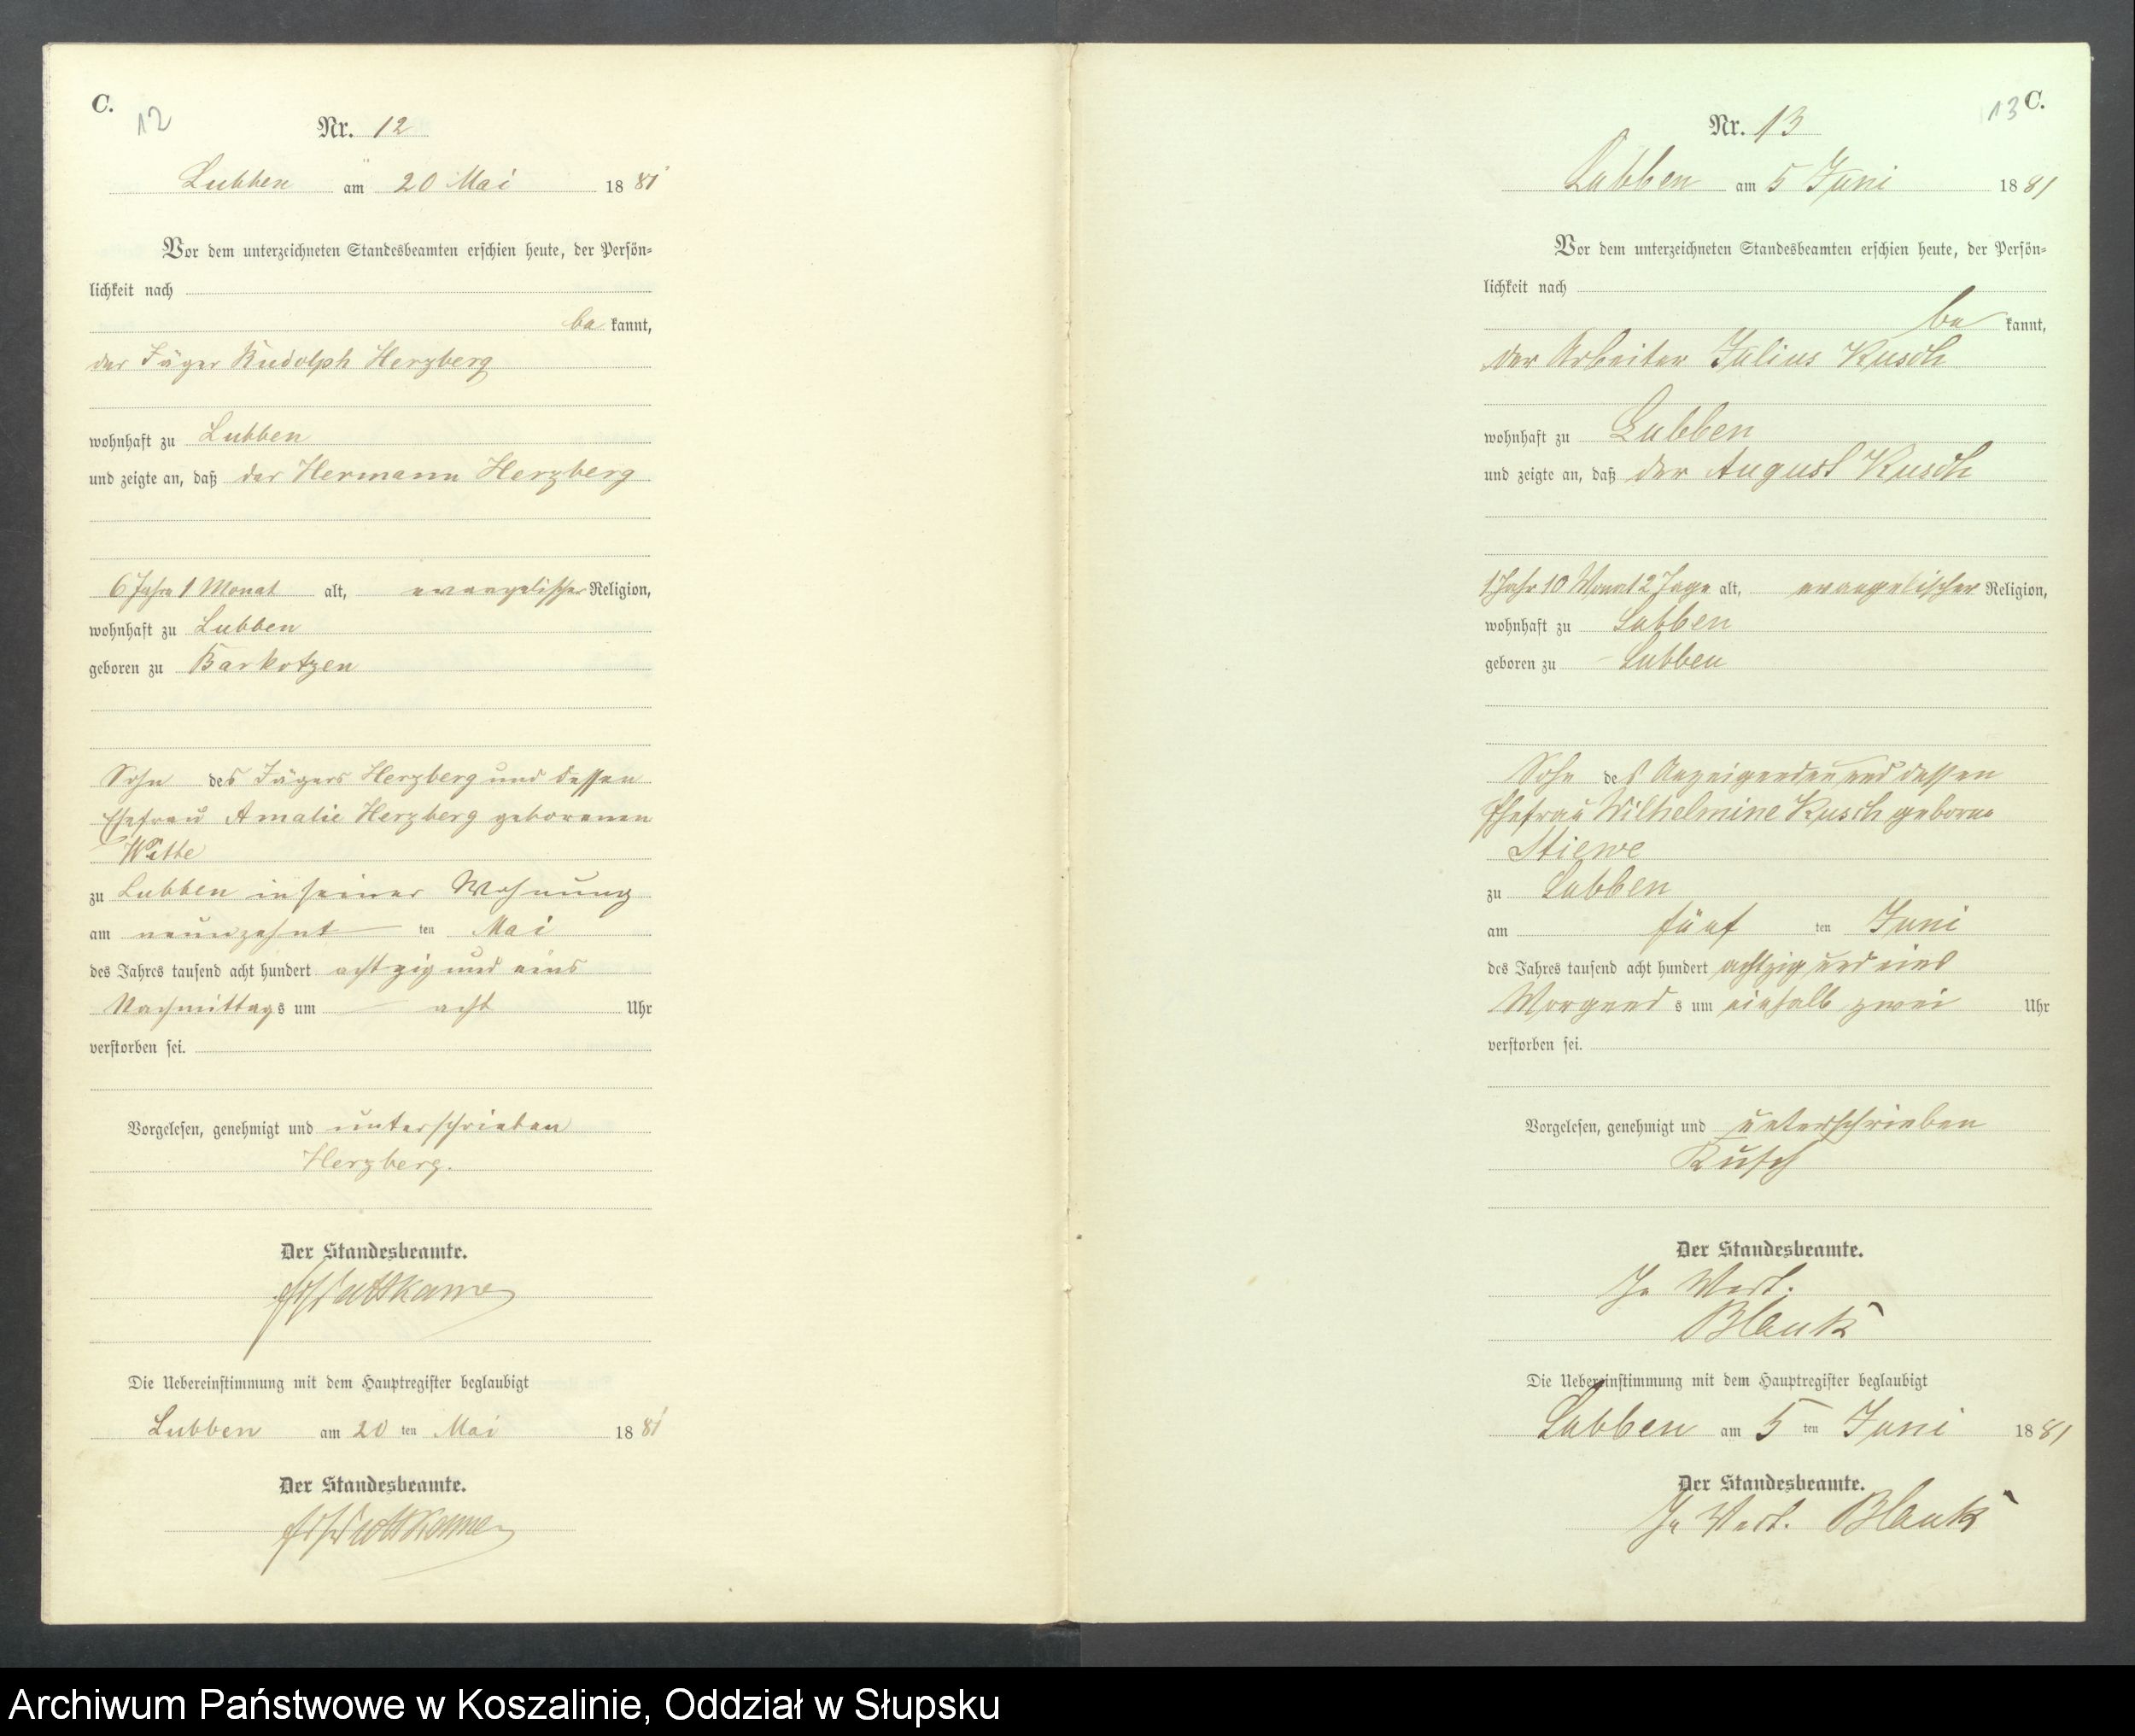 C.
12
Nr. 12
Lubben am 20 Mai 1881
Vor dem unterzeichneten Standesbeamten erschien heute, der Persön-
lichkeit nach
be kannt,
der Jäger Rudolph Herzberg
wohnhaft zu Lubben
und zeigte an, daß der Hermann Herzberg
6 Jahre 1 Monat alt, evangelischer Religion,
wohnhaft zu Lubben
geboren zu Barkotzen
Sohn des Jägers Herzberg und dessen
Ehefrau Amalie Herzberg geborenen
Witte
zu Lubben in seiner Wohnung
am neunzehnt ten Mai
des Jahres tausend acht hundert achtzig und eins
Nachmittags um acht Uhr
verstorben sei.
Vorgelesen, genehmigt und unterschrieben
Herzberg.
Der Standesbeamte.
Die Uebereinstimmung mit dem Hauptregister beglaubigt
Lubben am 20 ten Mai 1881
Der Standesbeamte.
13 C.
Nr. 13
Lubben am 5 Juni 1881
Vor dem unterzeichneten Standesbeamten erschien heute, der Persön-
lichkeit nach
be kannt,
der Arbeiter Julius Kusch
wohnhaft zu Lubben
und zeigte an, daß der August Kusch
1 Jahr 10 Monat 2 Tage alt, evangelischer Religion,
wohnhaft zu Lubben
geboren zu Lubben
Sohn des Anzeigenden und dessen
Ehefrau Wilhelmine Kusch geborne
Stiewe
zu Lubben
am fünf ten Juni
des Jahres tausend acht hundert achtzig und eins
Morgends um einhalb zwei Uhr
verstorben sei.
Vorgelesen, genehmigt und unterschrieben
Kusch
Der Standesbeamte.
In Vert.
Blank
Die Uebereinstimmung mit dem Hauptregister beglaubigt
Lubben am 5 ten Juni 1881
Der Standesbeamte.
In Vert. Blank
Archiwum Państwowe w Koszalinie, Oddział w Słupsku